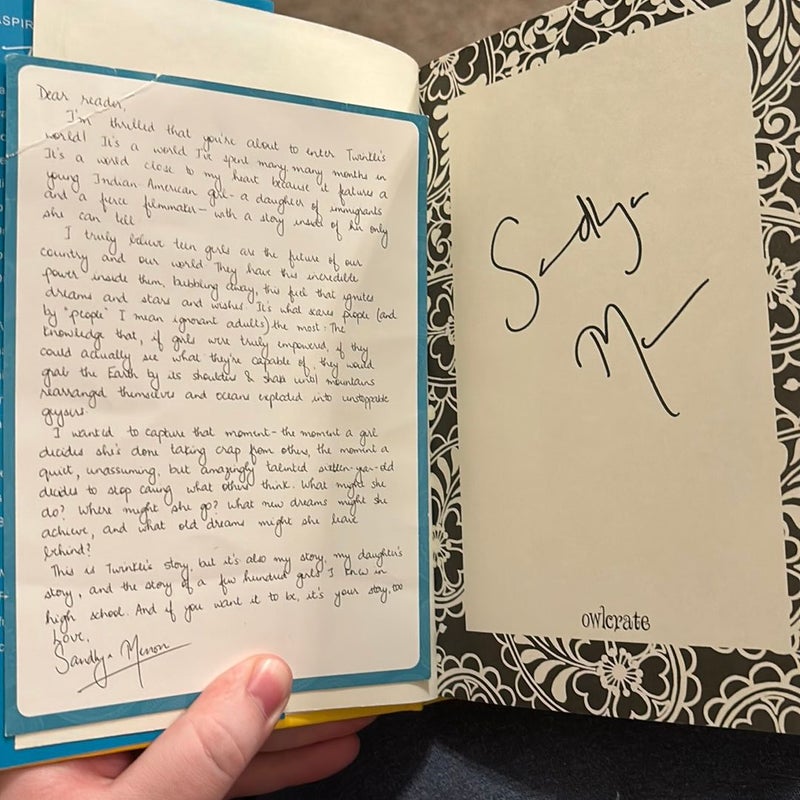 ASPIR
Dear reader,
I'm thrilled that you're about to enter Twinkle's
world! It's a world I've spent many, many months in
It's a world close to my heart because it features a
young Indian-American girl - a daughter of immigrants
and a fierce filmmaker - with a story inside of her only
she can tell
I truly believe teen girls are the future of our
country and our world. They have this incredible
power inside them, bubbling away, this fuel that ignites
dreams and stars and wishes. It's what scares people (and
by "people" I mean ignorant adults) the most: The
knowledge that, if girls were truly empowered, if they
could actually see what they're capable of, they would
grab the Earth by its shoulders & shake until mountains
rearranged themselves and oceans exploded into unstoppable
geysers.
I wanted to capture that moment - the moment a girl
decides she's done taking crap from others, the moment a
quiet, unassuming, but amazingly talented sixteen-year-old
decides to stop caring what others think. What might she
do? Where might she go? What new dreams might she
achieve, and what old dreams might she leave
behind?
This is Twinkle's story, but it's also my story, my daughter's
story, and the story of a few hundred girls I knew in
high school. And if you want it to be, it's your story, too
Love,
Sandhya Menon
Sandhya
Menon
owlcrate